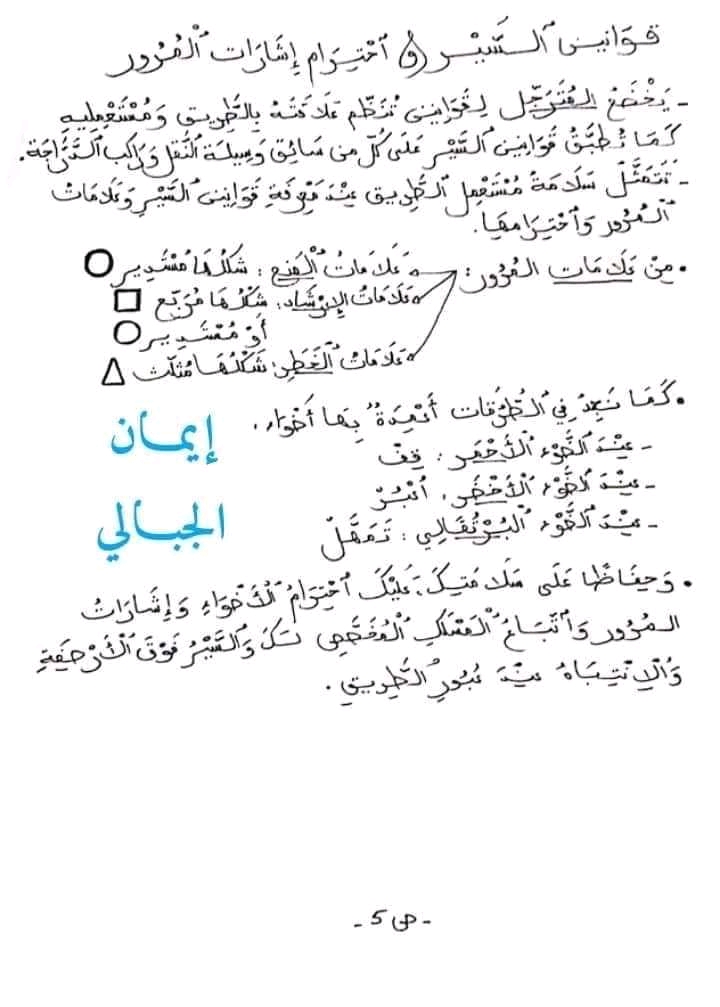 قَوَانِينُ ٱلسَّيْرِ وَ ٱحْتِرَام إِشَارَات ٱلْمُرُور
- يَخْضَعُ المُتَرَجِّل لِقَوَانِين تُنَظِّم عَلَاقَتَهُ بِالطَّرِيق وَمُسْتَعْمِلِيهِ
كَمَا تُطَبَّقُ قَوَانِين ٱلسَّيْر عَلَى كُلّ مِن سَائِق وَسِيلَة النَّقْل وَرَاكِب ٱلدَّرَّاجَة.
- تَتَمَثَّل سَلَامَةُ مُسْتَعْمِل ٱلطَّرِيق عِنْدَ مَعْرِفَةِ قَوَانِين ٱلسَّيْرِ وَعَلَامَات
ٱلْمُرُور وَٱحْتِرَامهَا.
• مِنْ عَلَامَات المُرُور:
عَلَامَاتُ ٱلْمَنع: شَكْلُهَا مُسْتَدِير
عَلَامَاتُ الإِرْشَاد: شَكْلُهَا مُرَبّع
أَوْ مُسْتَدِير
عَلَامَاتُ ٱلخَطَر: شَكْلُهَا مُثَلّث
• كَمَا نَجِدُ فِي ٱلطُّرُقَات أَعْمِدَةٌ بِهَا أَضْوَاء.
- عِنْدَ ٱلضَّوْء ٱلْأَحْمَر: قِفْ
- عِنْدَ ٱلضَّوْء ٱلْأَخْضَر: أعْبُرْ
- عِنْدَ ٱلضَّوْء ٱلْبُرْتُقَالِي: تَمَهَّلْ
إيمان
الجبالي
• وَحِفَاظًا عَلَى سَلَامَتِكَ، عَلَيْكَ ٱحْتِرَامُ ٱلْأَضْوَاءِ وَإِشَارَاتُ
المُرُور وَٱتّبَاعُ ٱلْمَسْلَكِ ٱلْمُخَصَّصِ لَكَ وَٱلسَّيْرُ فَوْقَ ٱلْأَرْصِفَةِ
وَٱلْاِنْتِبَاهُ عِنْدَ عُبُورِ ٱلطَّرِيقِ.
- ص 5 -